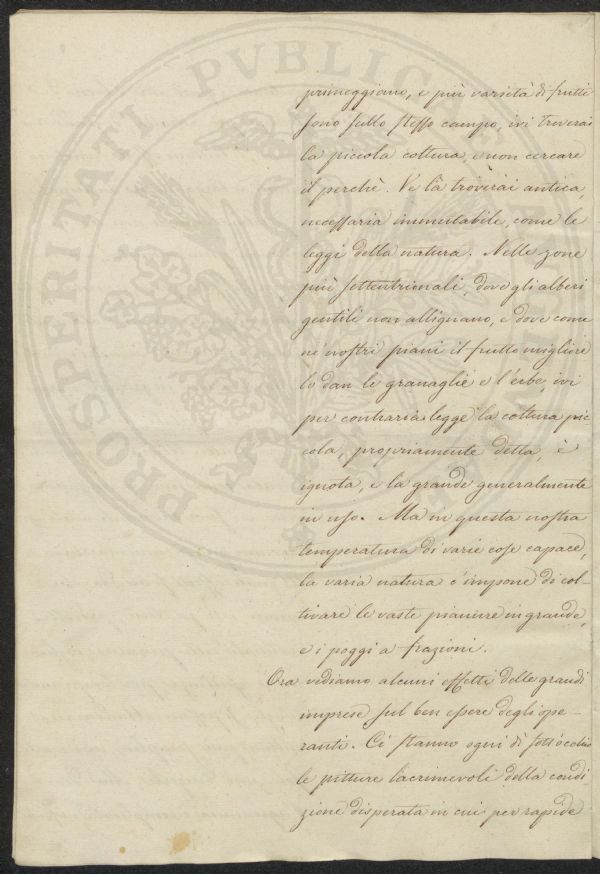 primeggiano, e più varietà di frutti
sono sullo stesso campo, ivi troverai
la piccola coltura, e non cercare
il perchè. Ve là troverai antica,
necessaria immutabile, come le
leggi della natura. Nelle zone
più settentrionali, dove gli alberi
gentili non allignano, e dove come
ne' nostri piani il frutto migliore
lo dan le granaglie e l'erbe, ivi
per contraria legge la coltura pic
cola, propriamente detta, è
ignota, e la grande generalmente
in uso. Ma in questa nostra
temperatura di varie cose capace,
la varia natura c'impone di col-
tivare le vaste pianure in grande,
e i poggi a frazioni.
Ora vediamo alcuni effetti delle grandi
imprese sul ben essere degli ope-
ranti. Ci stanno ogni dì sott'occhio
le pitture lacrimevoli della condi
zione disperata in cui per rapide
PROSPERITATI PVBLIC